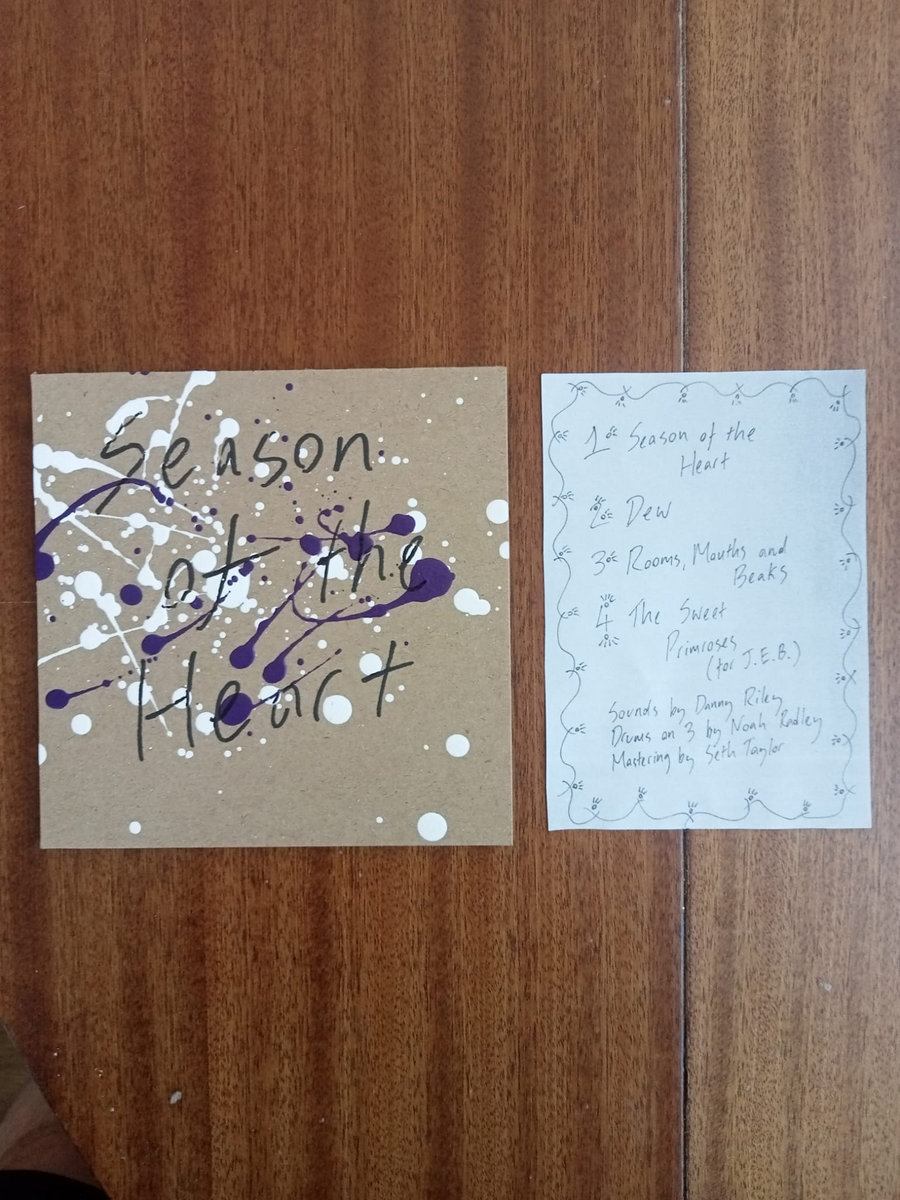 Season
of the
Heart
1 Season of the
Heart
2 Dew
3 Rooms, Mouths and
Beaks
4 The Sweet
Primroses
(for J.E.B.)
Sounds by Danny Riley
Drums on 3 by Noah Radley
Mastering by Seth Taylor